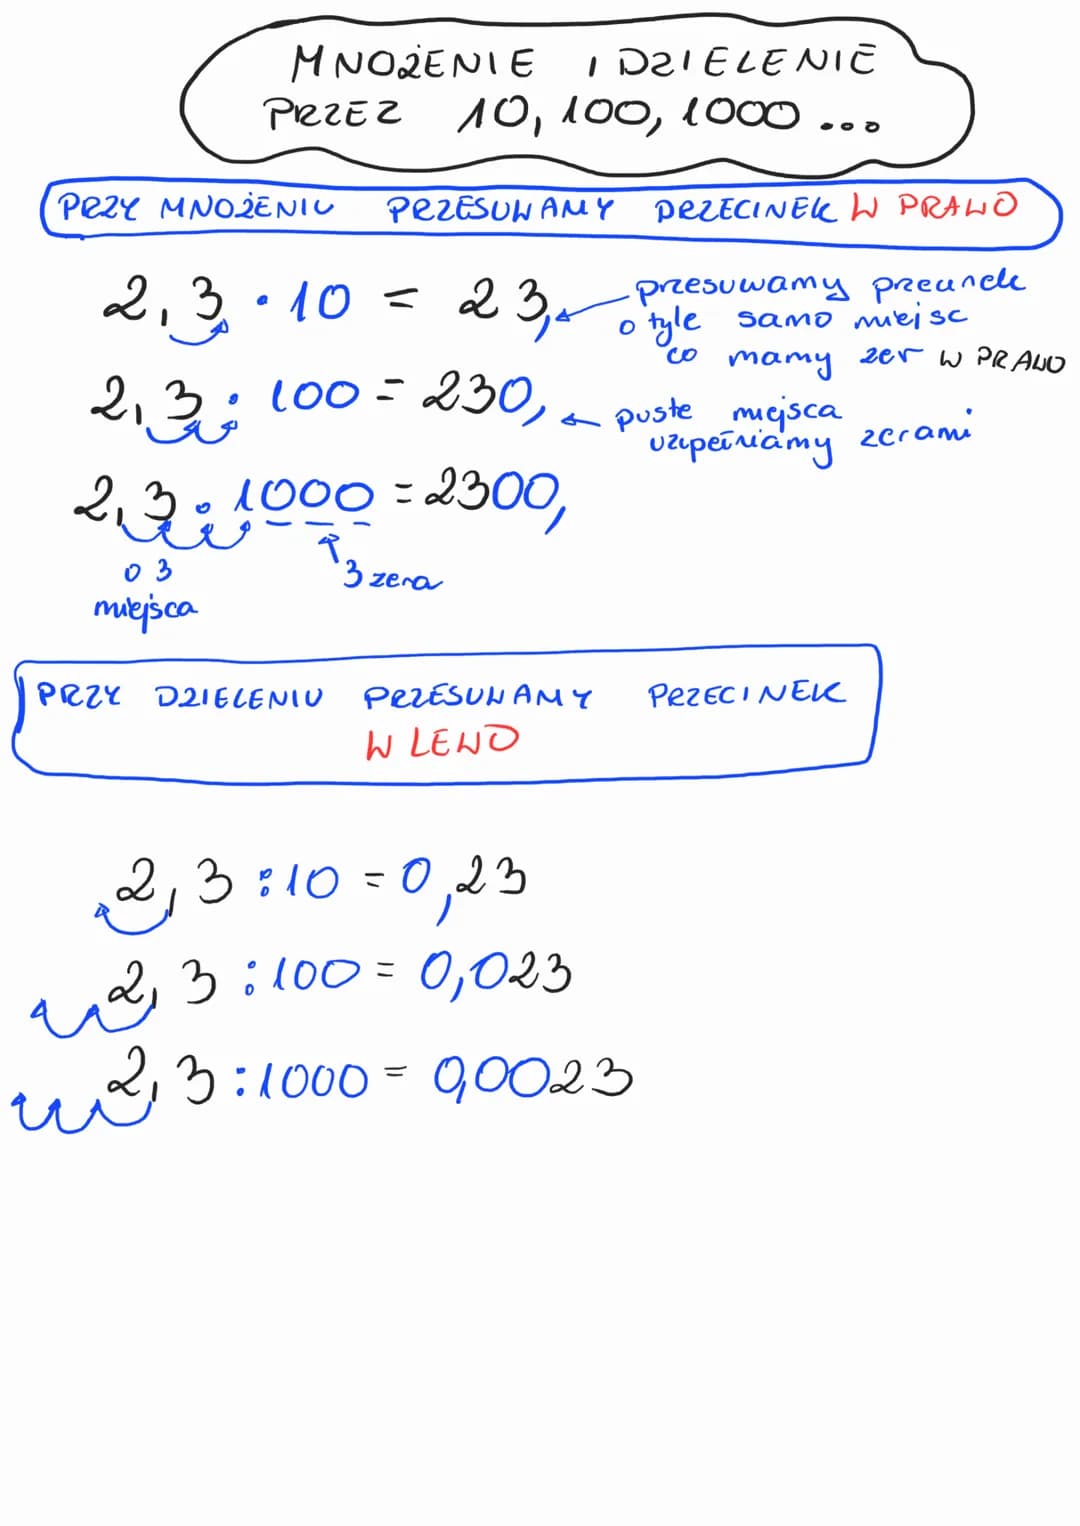 MNOŻENIE I DZIELENIE
PRZEZ 10, 100, 1000 ...
PRZY MNOŻENIU PRZESUWAMY PRZECINEK W PRAWO
2,3 · 10 = 23,
przesuwamy przecinek
o tyle samo miejsc
co mamy zer W PRAWO
2,3 · 100 = 230,
puste miejsca
uzupełniamy zerami
2,3 · 1000 = 2300,
o 3
miejsca
3 zera
PRZY DZIELENIU PRZESUWAMY PRZECINEK
W LEWO
2,3 : 10 = 0,23
2,3 : 100 = 0,023
2,3 : 1000 = 0,0023